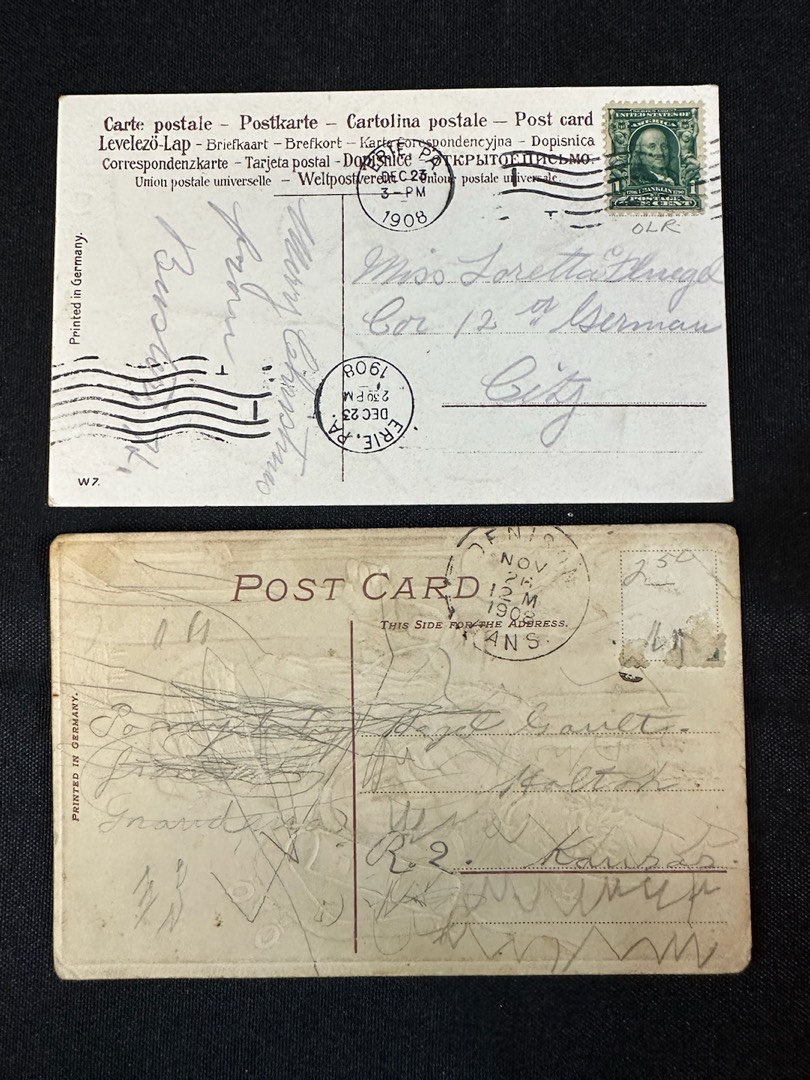 Carte postale – Postkarte – Cartolina postale — Post card
Levelező-Lap – Briefkaart – Brefkort – Karta Corespondencyjna – Dopisnica
Correspondenzkarte – Tarjeta postal – Dopisnice – ОТКРЫТОЕ ПИСЬМО.
Union postale universelle – Weltpostverein – Unione postale universale.
ERIE, PA.
DEC 23
3 – PM
1908
UNITED STATES OF
AMERICA
1
FRANKLIN
POSTAGE
CENT
OLR
Printed in Germany.
Merry Christmas
from
Miss Loretta
Cor 12 & German
City
ERIE, PA.
DEC 23
2 30 PM
1908
W 7.
POST CARD
THIS SIDE FOR THE ADDRESS.
DENISON
NOV
26
12 M
1908
KANS.
250
PRINTED IN GERMANY.
from
Grandma
Hazel Gault.
Holton
R. 2. Kansas.